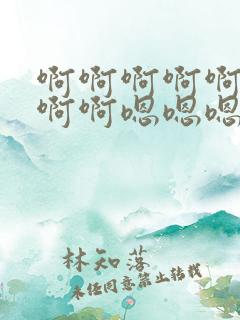 啊啊啊啊啊
啊啊嗯嗯嗯
林知落
未经同意禁止转载